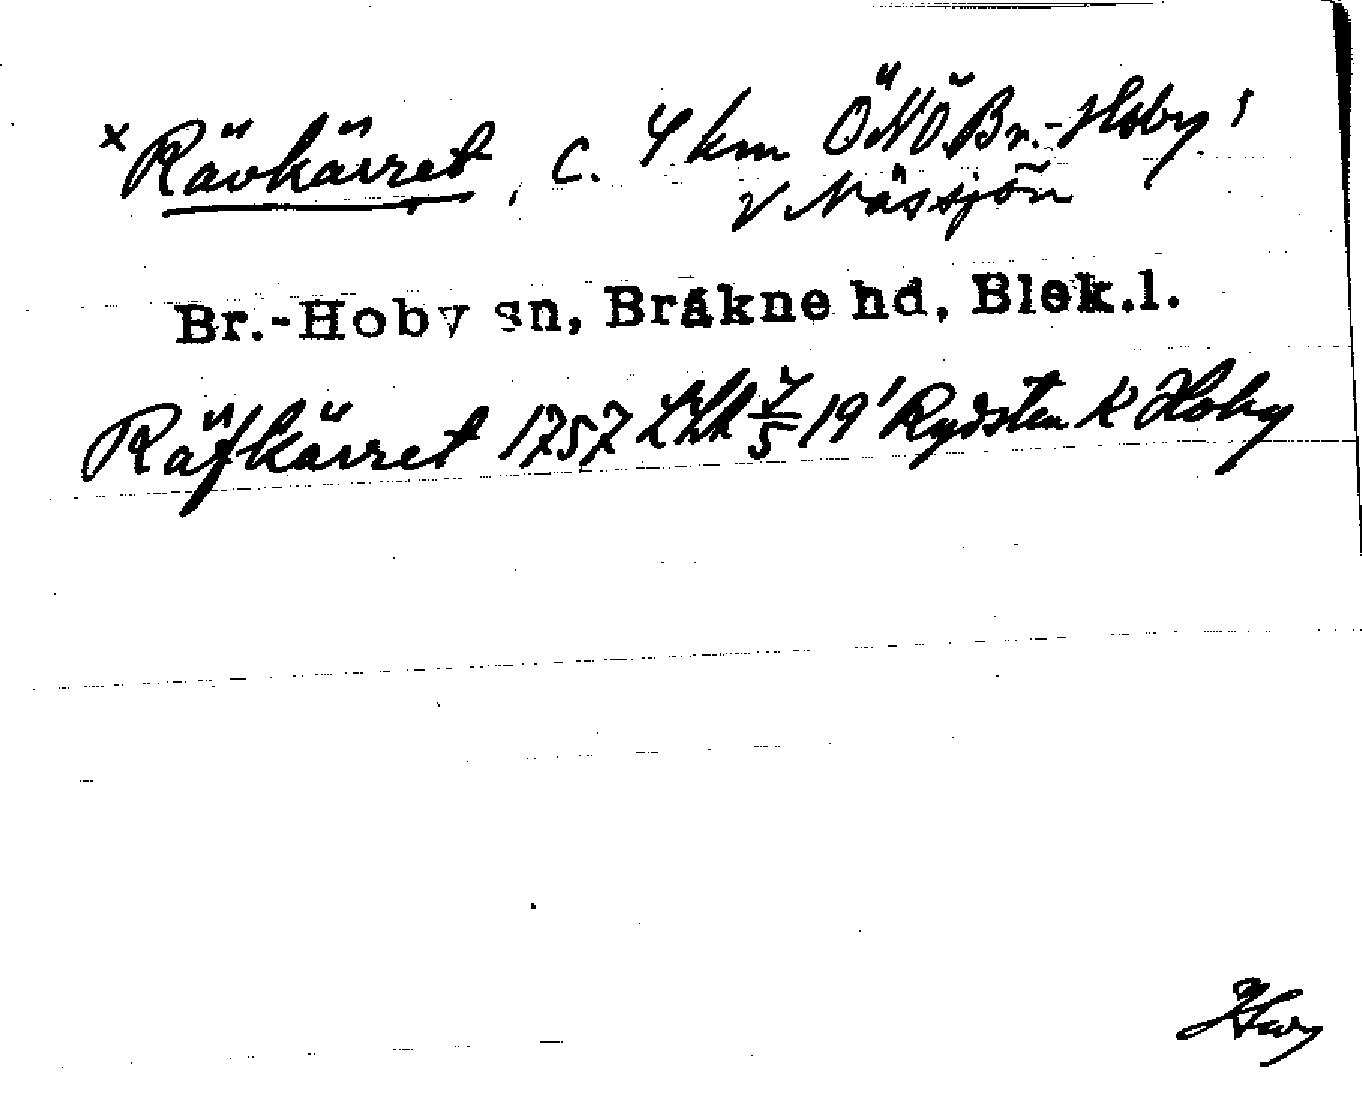 x Rävkärret, c. 4 km ÖNÖ Br.-Hoby
V Nässjön
Br.-Hoby sn, Bräkne hd, Blek.l.
Räfkärret 1757 Lhk 19 Rydsten K Hoby